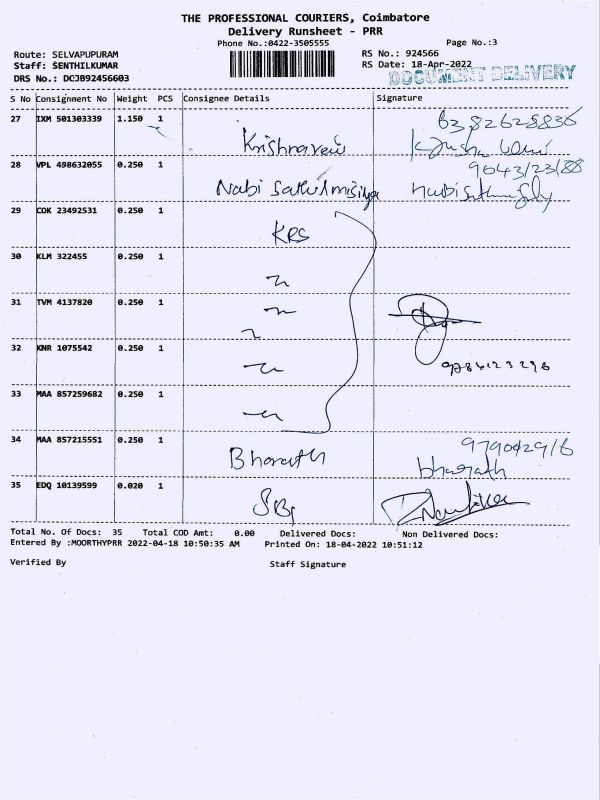 THE PROFESSIONAL COURIERS, Coimbatore
Delivery Runsheet - PRR
Phone No.:0422-3505555
Page No.:3
Route: SELVAPUPURAM
RS No.: 924566
Staff: SENTHILKUMAR
RS Date: 18-Apr-2022
DRS No.: DCJB92456603
DOCUMENT DELIVERY
S No Consignment No Weight PCS Consignee Details Signature
27 IXM 501303339 1.150 1
6382628836
Krishnaveni
28 VPL 498632055 0.250 1
9043123188
Nabi
29 COK 23492531 0.250 1
KRS
30 KLM 322455 0.250 1
31 TVM 4137820 0.250 1
32 KNR 1075542 0.250 1
9786123296
33 MAA 857259682 0.250 1
34 MAA 857215551 0.250 1
Bharath bharath
35 EDQ 10139599 0.020 1
SBI
Total No. Of Docs: 35 Total COD Amt: 0.00 Delivered Docs: Non Delivered Docs:
Entered By :MOORTHYPRR 2022-04-18 10:50:35 AM Printed On: 18-04-2022 10:51:12
Verified By Staff Signature